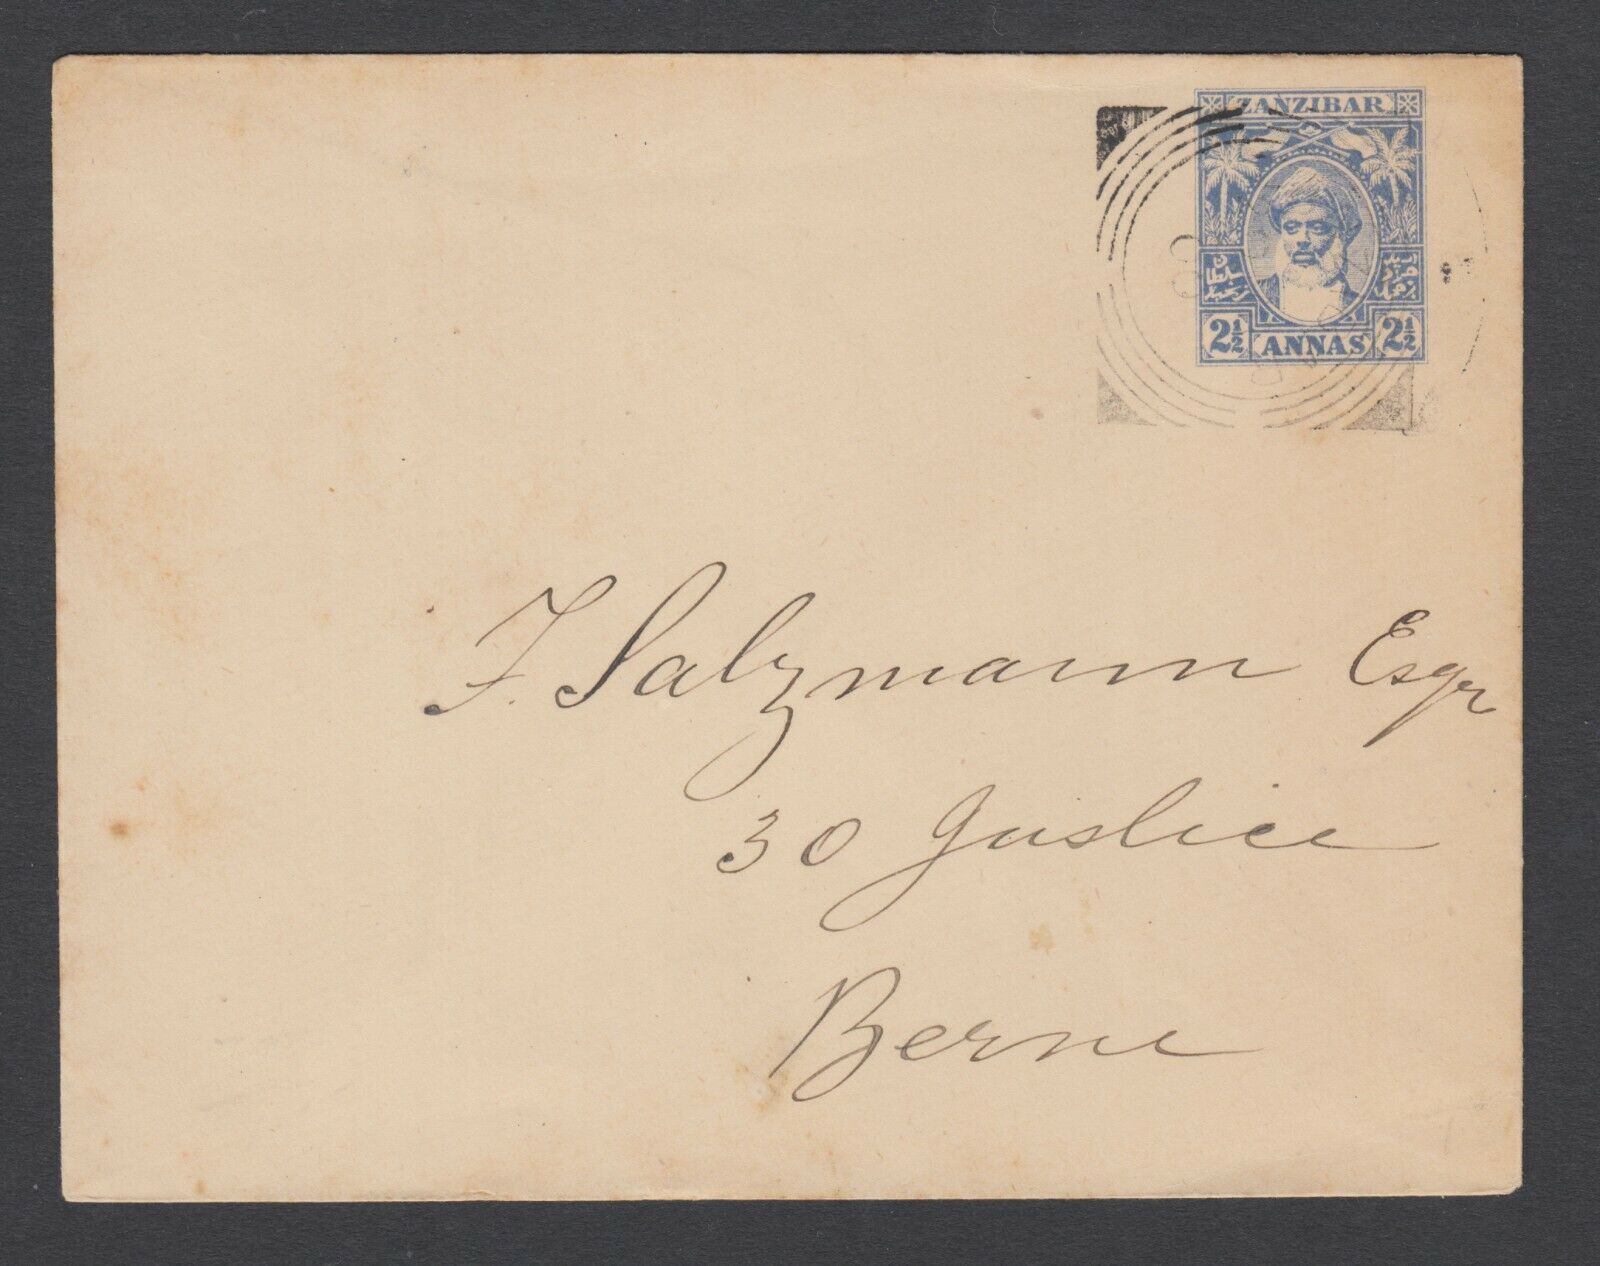 ZANZIBAR
2½ ANNAS 2½
F. Salzmann Esqr
30 Justice
Berne